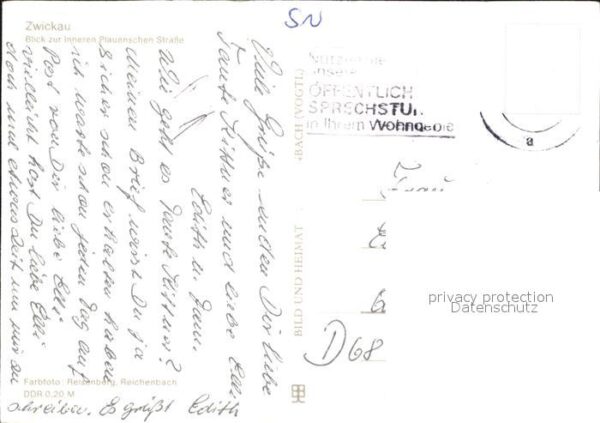 SN
Zwickau
Blick zur Inneren Plauenschen Straße
Viele Grüße senden Dir liebe
Tante Kittner und liebe Elli
Edith u. Fam.
Wie geht es Tante Kittner?
Meinen Brief wirst Du ja
sicher schon erhalten haben
ich warte schon jeden Tag auf
Post von Dir liebe Elli
vielleicht hast Du liebe Elli
doch mal etwas Zeit um mir zu
schreiben. Es grüßt Edith
Farbfoto: Reisenberg, Reichenbach
DDR 0,20 M
BILD UND HEIMAT
BACH (VOGTL
ÖFFENTLICH
SPRECHSTU
in Ihrem Wohngebie
a
D68
privacy protection
Datenschutz